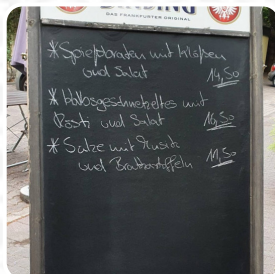 BINDING
DAS FRANKFURTER ORIGINAL
* Spießbraten mit Klößen
und Salat 14,50
mit
Rösti und Salat 16,50
* Sülze mit Musik
und Bratkartoffeln 11,50